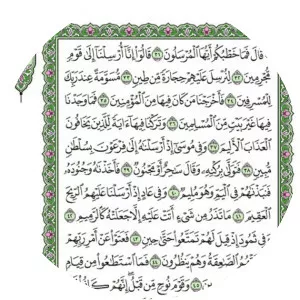 قَالَ فَمَا خَطْبُكُمْ أَيُّهَا الْمُرْسَلُونَ ٣١ قَالُوا إِنَّا أُرْسِلْنَا إِلَىٰ قَوْمٍ
مُجْرِمِينَ ٣٢ لِنُرْسِلَ عَلَيْهِمْ حِجَارَةً مِنْ طِينٍ ٣٣ مُسَوَّمَةً عِنْدَ رَبِّكَ
لِلْمُسْرِفِينَ ٣٤ فَأَخْرَجْنَا مَنْ كَانَ فِيهَا مِنَ الْمُؤْمِنِينَ ٣٥ فَمَا وَجَدْنَا
فِيهَا غَيْرَ بَيْتٍ مِنَ الْمُسْلِمِينَ ٣٦ وَتَرَكْنَا فِيهَا آيَةً لِلَّذِينَ يَخَافُونَ
الْعَذَابَ الْأَلِيمَ ٣٧ وَفِي مُوسَىٰ إِذْ أَرْسَلْنَاهُ إِلَىٰ فِرْعَوْنَ بِسُلْطَانٍ
مُبِينٍ ٣٨ فَتَوَلَّىٰ بِرُكْنِهِ وَقَالَ سَاحِرٌ أَوْ مَجْنُونٌ ٣٩ فَأَخَذْنَاهُ وَجُنُودَهُ
فَنَبَذْنَاهُمْ فِي الْيَمِّ وَهُوَ مُلِيمٌ ٤٠ وَفِي عَادٍ إِذْ أَرْسَلْنَا عَلَيْهِمُ الرِّيحَ
الْعَقِيمَ ٤١ مَا تَذَرُ مِنْ شَيْءٍ أَتَتْ عَلَيْهِ إِلَّا جَعَلَتْهُ كَالرَّمِيمِ ٤٢
وَفِي ثَمُودَ إِذْ قِيلَ لَهُمْ تَمَتَّعُوا حَتَّىٰ حِينٍ ٤٣ فَعَتَوْا عَنْ أَمْرِ رَبِّهِمْ
الصَّاعِقَةُ وَهُمْ يَنْظُرُونَ ٤٤ فَمَا اسْتَطَاعُوا مِنْ قِيَامٍ
٤٥ وَقَوْمَ نُوحٍ مِنْ قَبْلُ إِنَّهُمْ كَانُوا